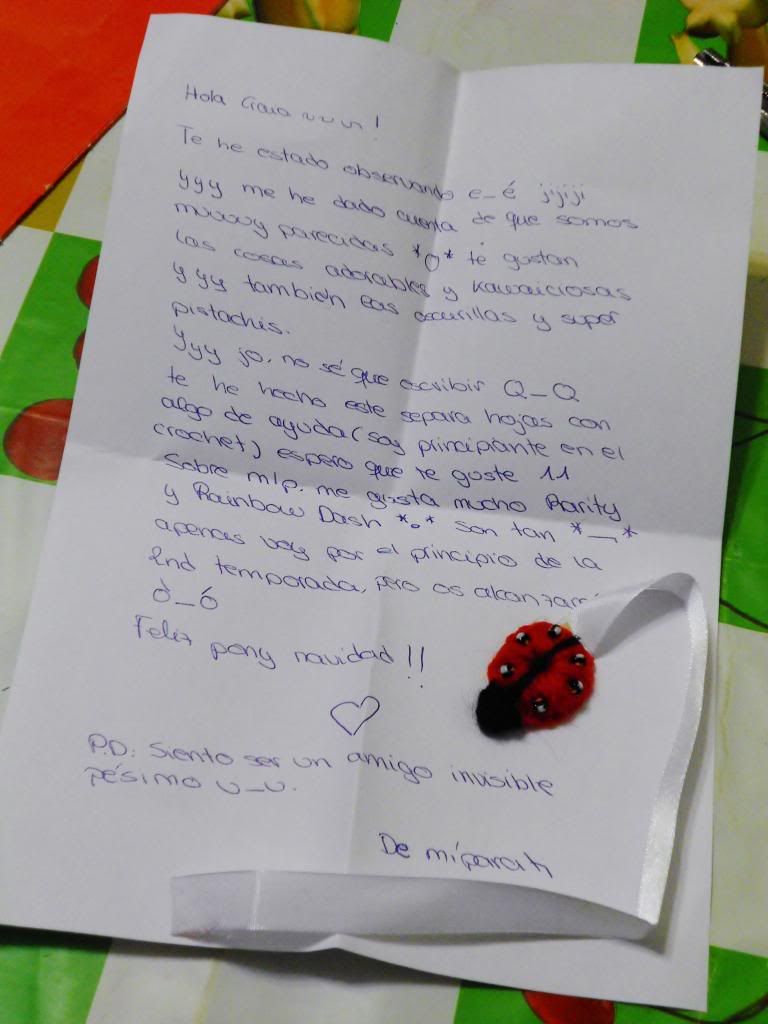 Hola
Te he estado observando e_é jijiji
yyy me he dado cuenta de que somos
muuuy parecidas *o* te gustan
las cosas adorables y kawaiciosas
y yy también las oscurillas y super
pistachis.
Yyy jo, no sé que escribir Q_Q
te he hecho este separa hojas con
algo de ayuda (soy principiante en el
crochet) espero que te guste 11
Sobre mlp. me gusta mucho Rarity
y Rainbow Dash *o* son tan *__*
apenas voy por el principio de la
2nd temporada, pero os
ò_ó
Feliz pony navidad !!
♡
P.D: Siento ser un amigo invisible
pésimo u_u.
De miparah